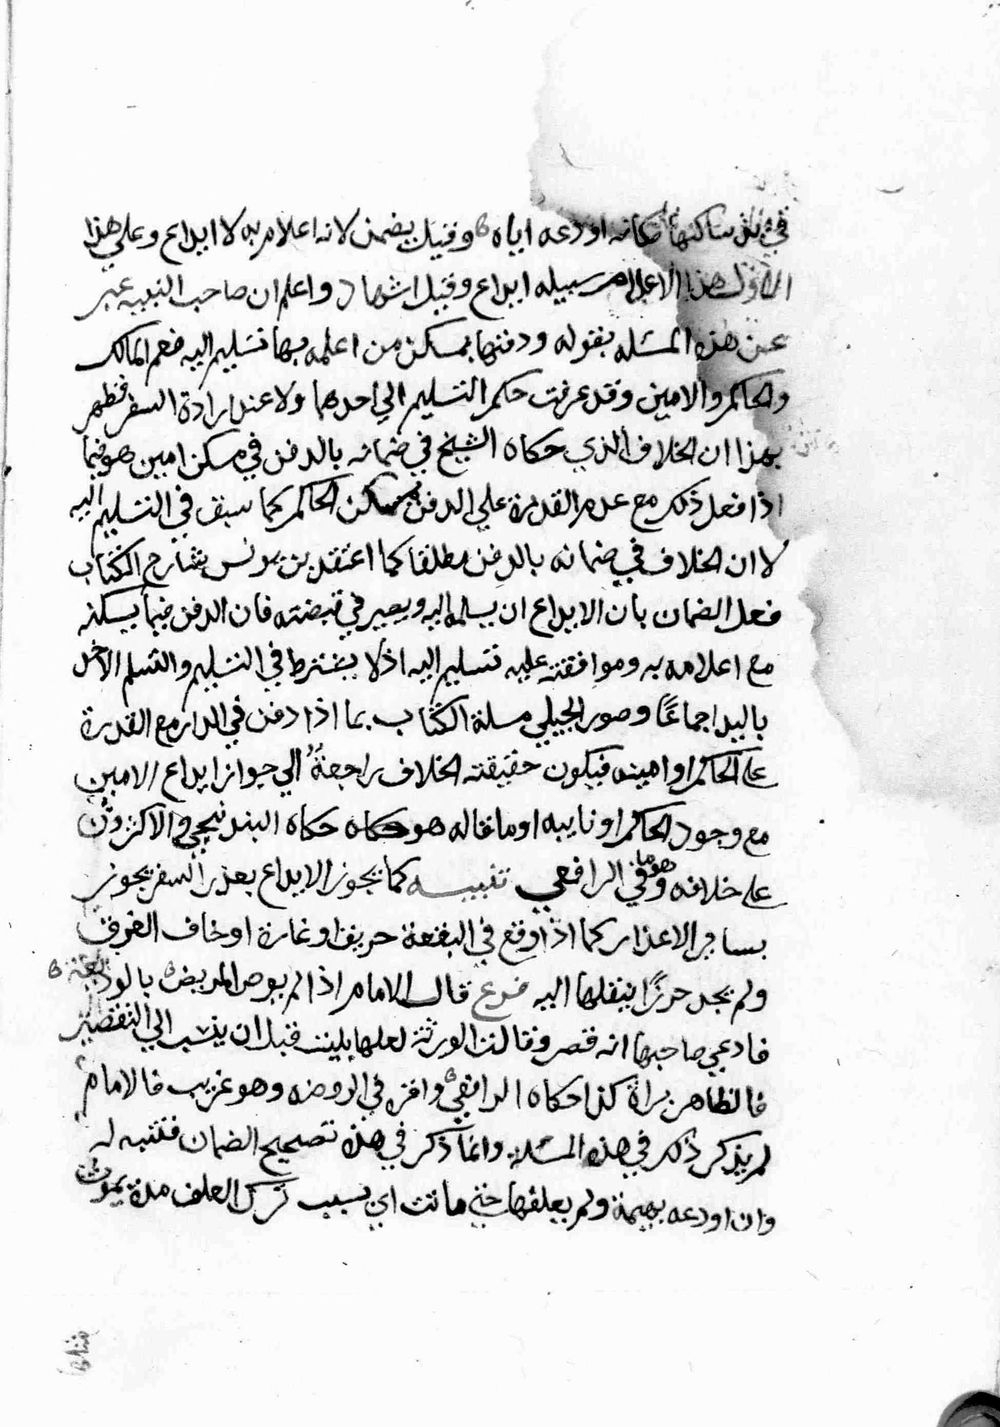 في يد ساكنها فكانه اودعه اياه وقيل يضمن لانه اعلام به لا ايداع وعلى هذا
الاول هذا الاعلام سبيله ايداع وقيل اشهاد واعلم ان صاحب التنبيه عبر
عن هذه المسئله بقوله ودفنها بمسكن من اعلمه بها تسليم اليه فعم المالك
والحاكم والامين وقد عرفت حكم التسليم الي احدهما ولا عند ارادة السفر فظهر
بهذا ان الخلاف الذي حكاه الشيخ في ضمانه بالدفن في مسكن امين هو فيما
اذا فعل ذلك مع عدم القدرة علي الدفن بمسكن الحاكم كما سبق في التسليم اليه
لا ان الخلاف في ضمانه بالدفن مطلقا كما اعتقد بن يونس شارح الكتاب
فعلل الضمان بان الايداع ان يسلمه اليه ويصير في قبضته فان الدفن فيما يسكنه
مع اعلامه به وموافقته عليه تسليم اليه اذ لا يشترط في التسليم والتسلم الاخذ
باليد اجماعًا وصور الجيلي مسلة الكتاب بما اذا دفن في الدار مع القدرة
على الحاكم او امينه فيكون حقيقته الخلاف راجعة الي جواز ايداع الامين
مع وجود الحاكم او نايبه اوما قاله هو حكاه البندنيجي والاكثرون
على خلافه وهو ما في الرافعي تنبيه كما يجوز الايداع بعذر السفر يجوز
بساير الاعذار كما اذا وقع في البقعة حريق او غارة او خاف الغرق
ولم يجد حرزًا ينقلها اليه فرع قال الامام اذا لم يوص المريض بالوديعة
فادعي صاحبها انه قصر وقالت الورثة لعلها تلفت قبل ان ينسب الي التقصير
فالظاهر براة كذا حكاه الرافعي واقره في الروضه وهو غريب فالامام
لم يذكر ذلك في هذه المسئله وانما ذكر في هذه تصحيح الضمان فتنبه له
وان اودعه بهيمة ولم يعلفها حتي ماتت اي بسبب ترك العلف مدة يموت